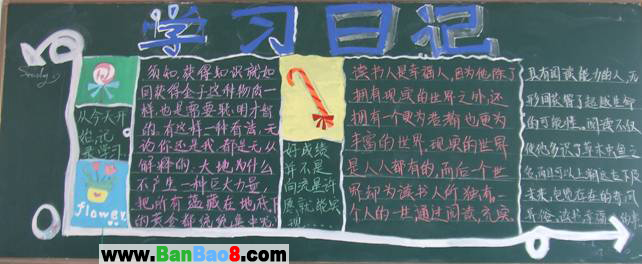 学习日记
Sunday
从今天开
始,记
要学习
flower
须知,获得知识就如
同获得金子这种物质一
样,也是需要聪明才智
的.有这样一种有话,无
论你还是我,都是无从
解释的:大地为什么
不产生一种巨大力量,
把所有蕴藏在地底下
的黄金都统统集中呢
好成绩
并不是
向流星许
愿就能实
现......
读书人是幸福人,因为他除了
拥有现实的世界之外,还
拥有一个更为老者也更为
丰富的世界.现实的世界
是人人都有的,而后一个世
界却为读书人所独有.一
个人的一世通过阅读,充实
具有阅读能力的人,无
形间获得了超越生命
的可能性.阅读不仅
使他多识了草木虫鱼之
名,而且可以上溯远古下及
未来,包览存在的奇闻
异俗.读书幸福
www.BanBao8.com